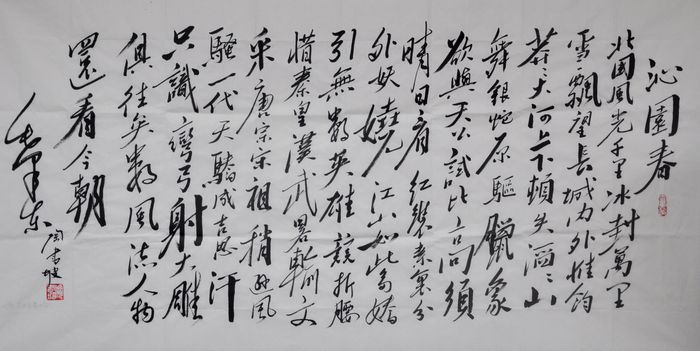 沁園春
北国風光千里冰封萬里
雪飄望長城内外惟餘
莽々大河上下頓失滔々山
舞銀蛇原驅蠟象
欲與天公試比高須
晴日看紅裝素裹分
外妖嬈江山如此多嬌
引無數英雄競折腰
惜秦皇漢武畧輸文
采唐宗宋祖稍遜風
騷一代天驕成吉思汗
只識彎弓射大雕
俱往矣數風流人物
還看今朝
毛澤東